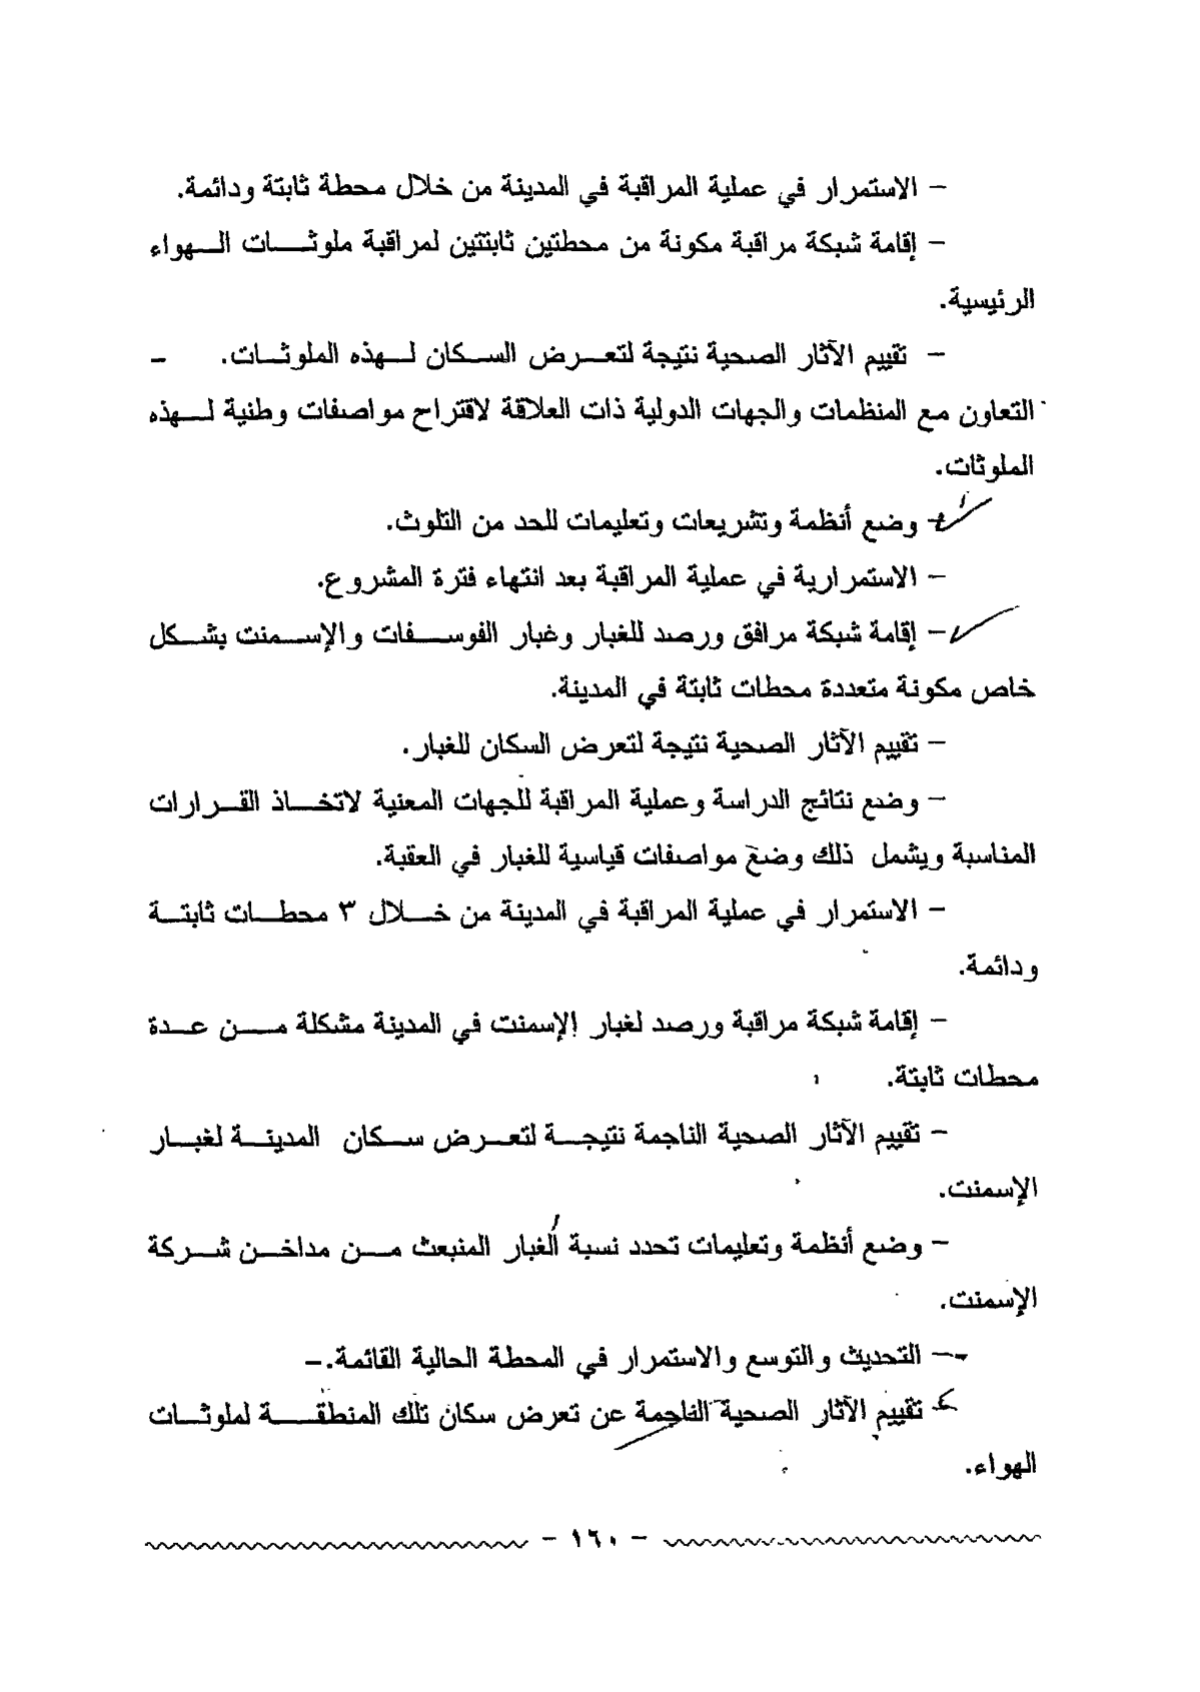 – الاستمرار في عملية المراقبة في المدينة من خلال محطة ثابتة ودائمة.
– إقامة شبكة مراقبة مكونة من محطتين ثابتتين لمراقبة ملوثات الهواء
الرئيسية.
– تقييم الآثار الصحية نتيجة لتعرض السكان لهذه الملوثات. –
التعاون مع المنظمات والجهات الدولية ذات العلاقة لاقتراح مواصفات وطنية لهذه
الملوثات.
– وضع أنظمة وتشريعات وتعليمات للحد من التلوث.
– الاستمرارية في عملية المراقبة بعد انتهاء فترة المشروع.
– إقامة شبكة مرافق ورصد للغبار وغبار الفوسفات والإسمنت بشكل
خاص مكونة متعددة محطات ثابتة في المدينة.
– تقييم الآثار الصحية نتيجة لتعرض السكان للغبار.
– وضع نتائج الدراسة وعملية المراقبة للجهات المعنية لاتخاذ القرارات
المناسبة ويشمل ذلك وضع مواصفات قياسية للغبار في العقبة.
– الاستمرار في عملية المراقبة في المدينة من خلال ٣ محطات ثابتة
ودائمة.
– إقامة شبكة مراقبة ورصد لغبار الإسمنت في المدينة مشكلة من عدة
محطات ثابتة.
– تقييم الآثار الصحية الناجمة نتيجة لتعرض سكان المدينة لغبار
الإسمنت.
– وضع أنظمة وتعليمات تحدد نسبة الغبار المنبعث من مداخن شركة
الإسمنت.
– التحديث والتوسع والاستمرار في المحطة الحالية القائمة. –
– تقييم الآثار الصحية الناجمة عن تعرض سكان تلك المنطقة لملوثات
الهواء.
– ١٦٠ –